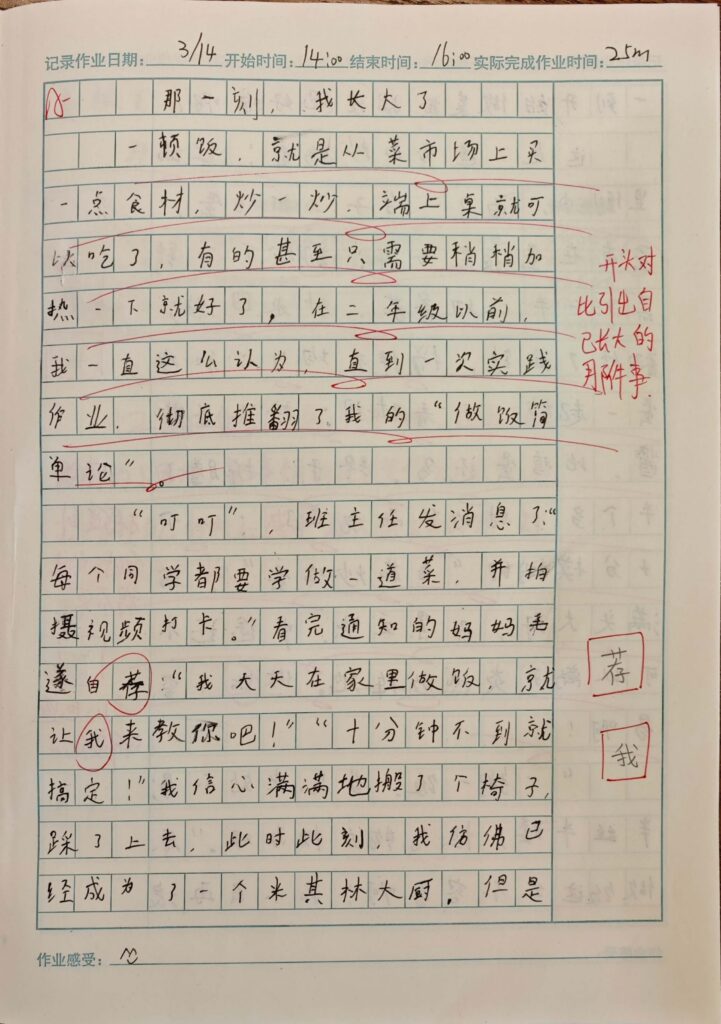 记录作业日期: 3/14 开始时间: 14:00 结束时间: 16:00 实际完成作业时间: 25m
A-
那一刻，我长大了
一顿饭，就是从菜市场上买
一点食材，炒一炒，端上桌就可
以吃了，有的甚至只需要稍稍加
热一下就好了，在二年级以前，
我一直这么认为，直到一次实践
作业，彻底推翻了我的“做饭简
单论”。
“叮叮”，班主任发消息了“
每个同学都要学做一道菜，并拍
摄视频打卡。”看完通知的妈妈毛
遂自荐：“我天天在家里做饭，就
让我来教你吧！”“十分钟不到就
搞定！”我信心满满地搬了个椅子，
踩了上去，此时此刻，我仿佛已
经成为了一个米其林大厨，但是
开头对
比引出自
己长大的
那件事.
荐
我
作业感受: